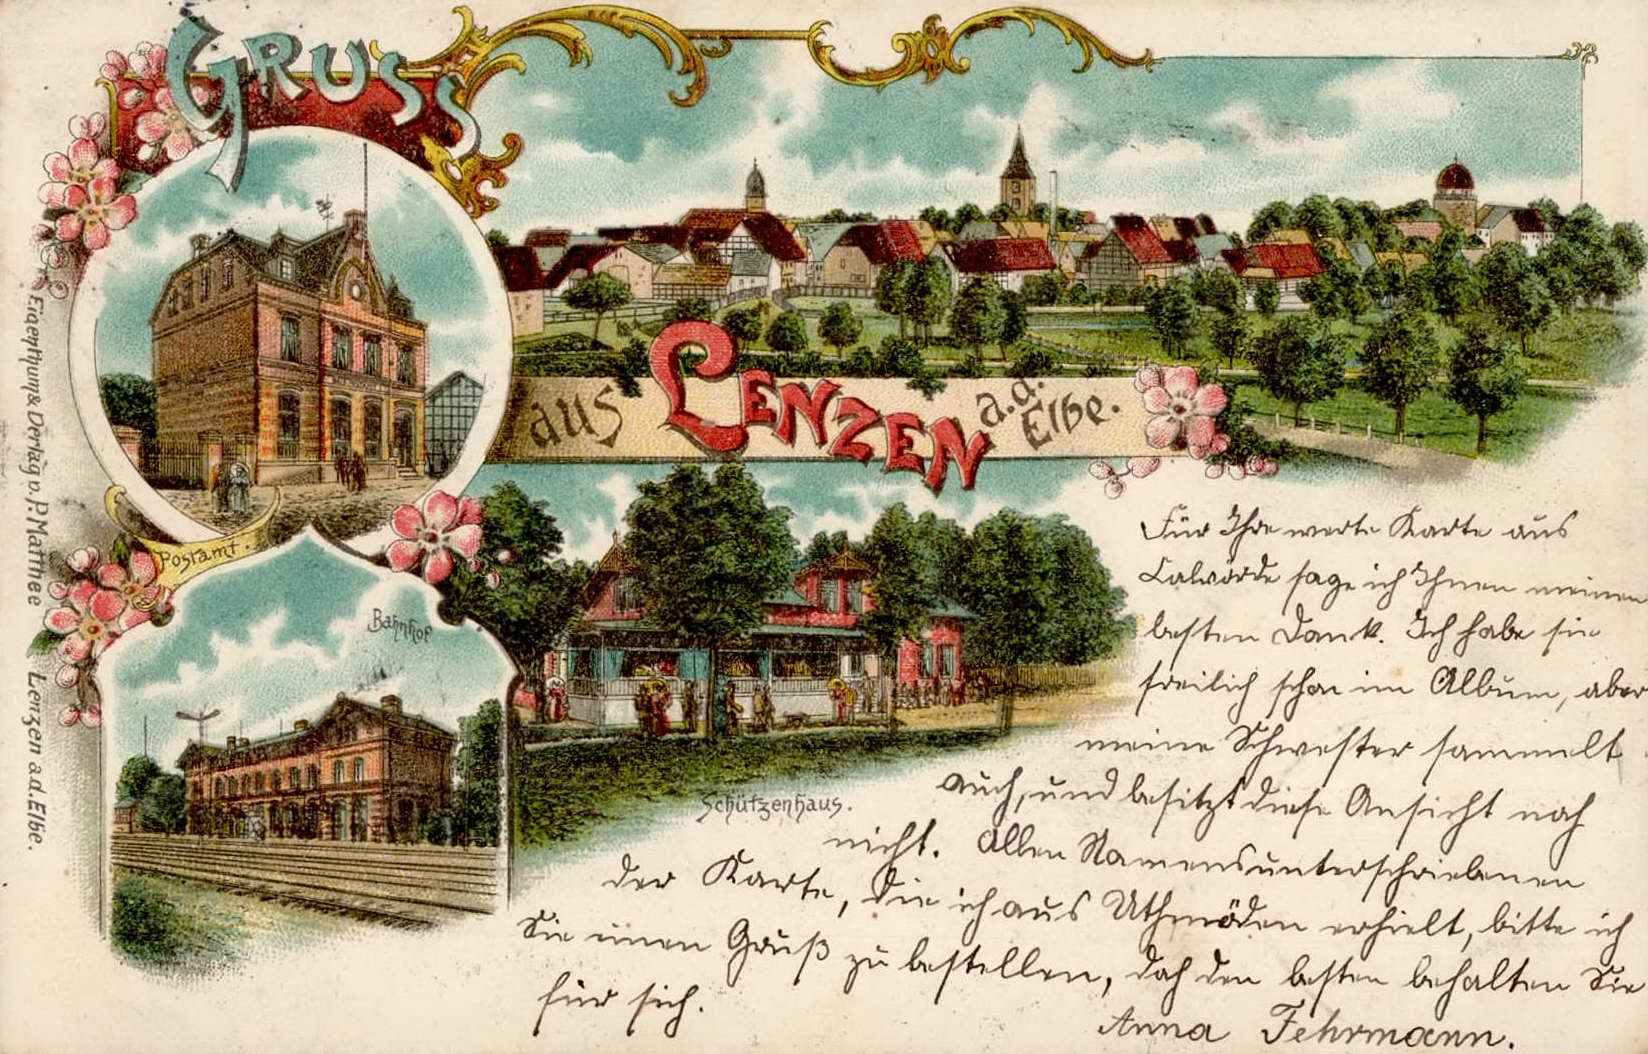 GRUSS
aus LENZEN a.d. Elbe.
Postamt.
Bahnhof
Schützenhaus.
Eigenthum & Verlag v. P. Matthee Lenzen a.d. Elbe.
Für Ihre werte Karte aus
Calvörde sage ich Ihnen meinen
besten Dank. Ich habe sie
freilich schon im Album, aber
meine Schwester sammelt
auch, und besitzt diese Ansicht noch
nicht. Allen Namensunterschriebenen
der Karte, die ich aus Uthmöden erhielt, bitte ich
Sie einen Gruß zu bestellen, doch den besten behalten Sie
für sich.
Anna Fehrmann.